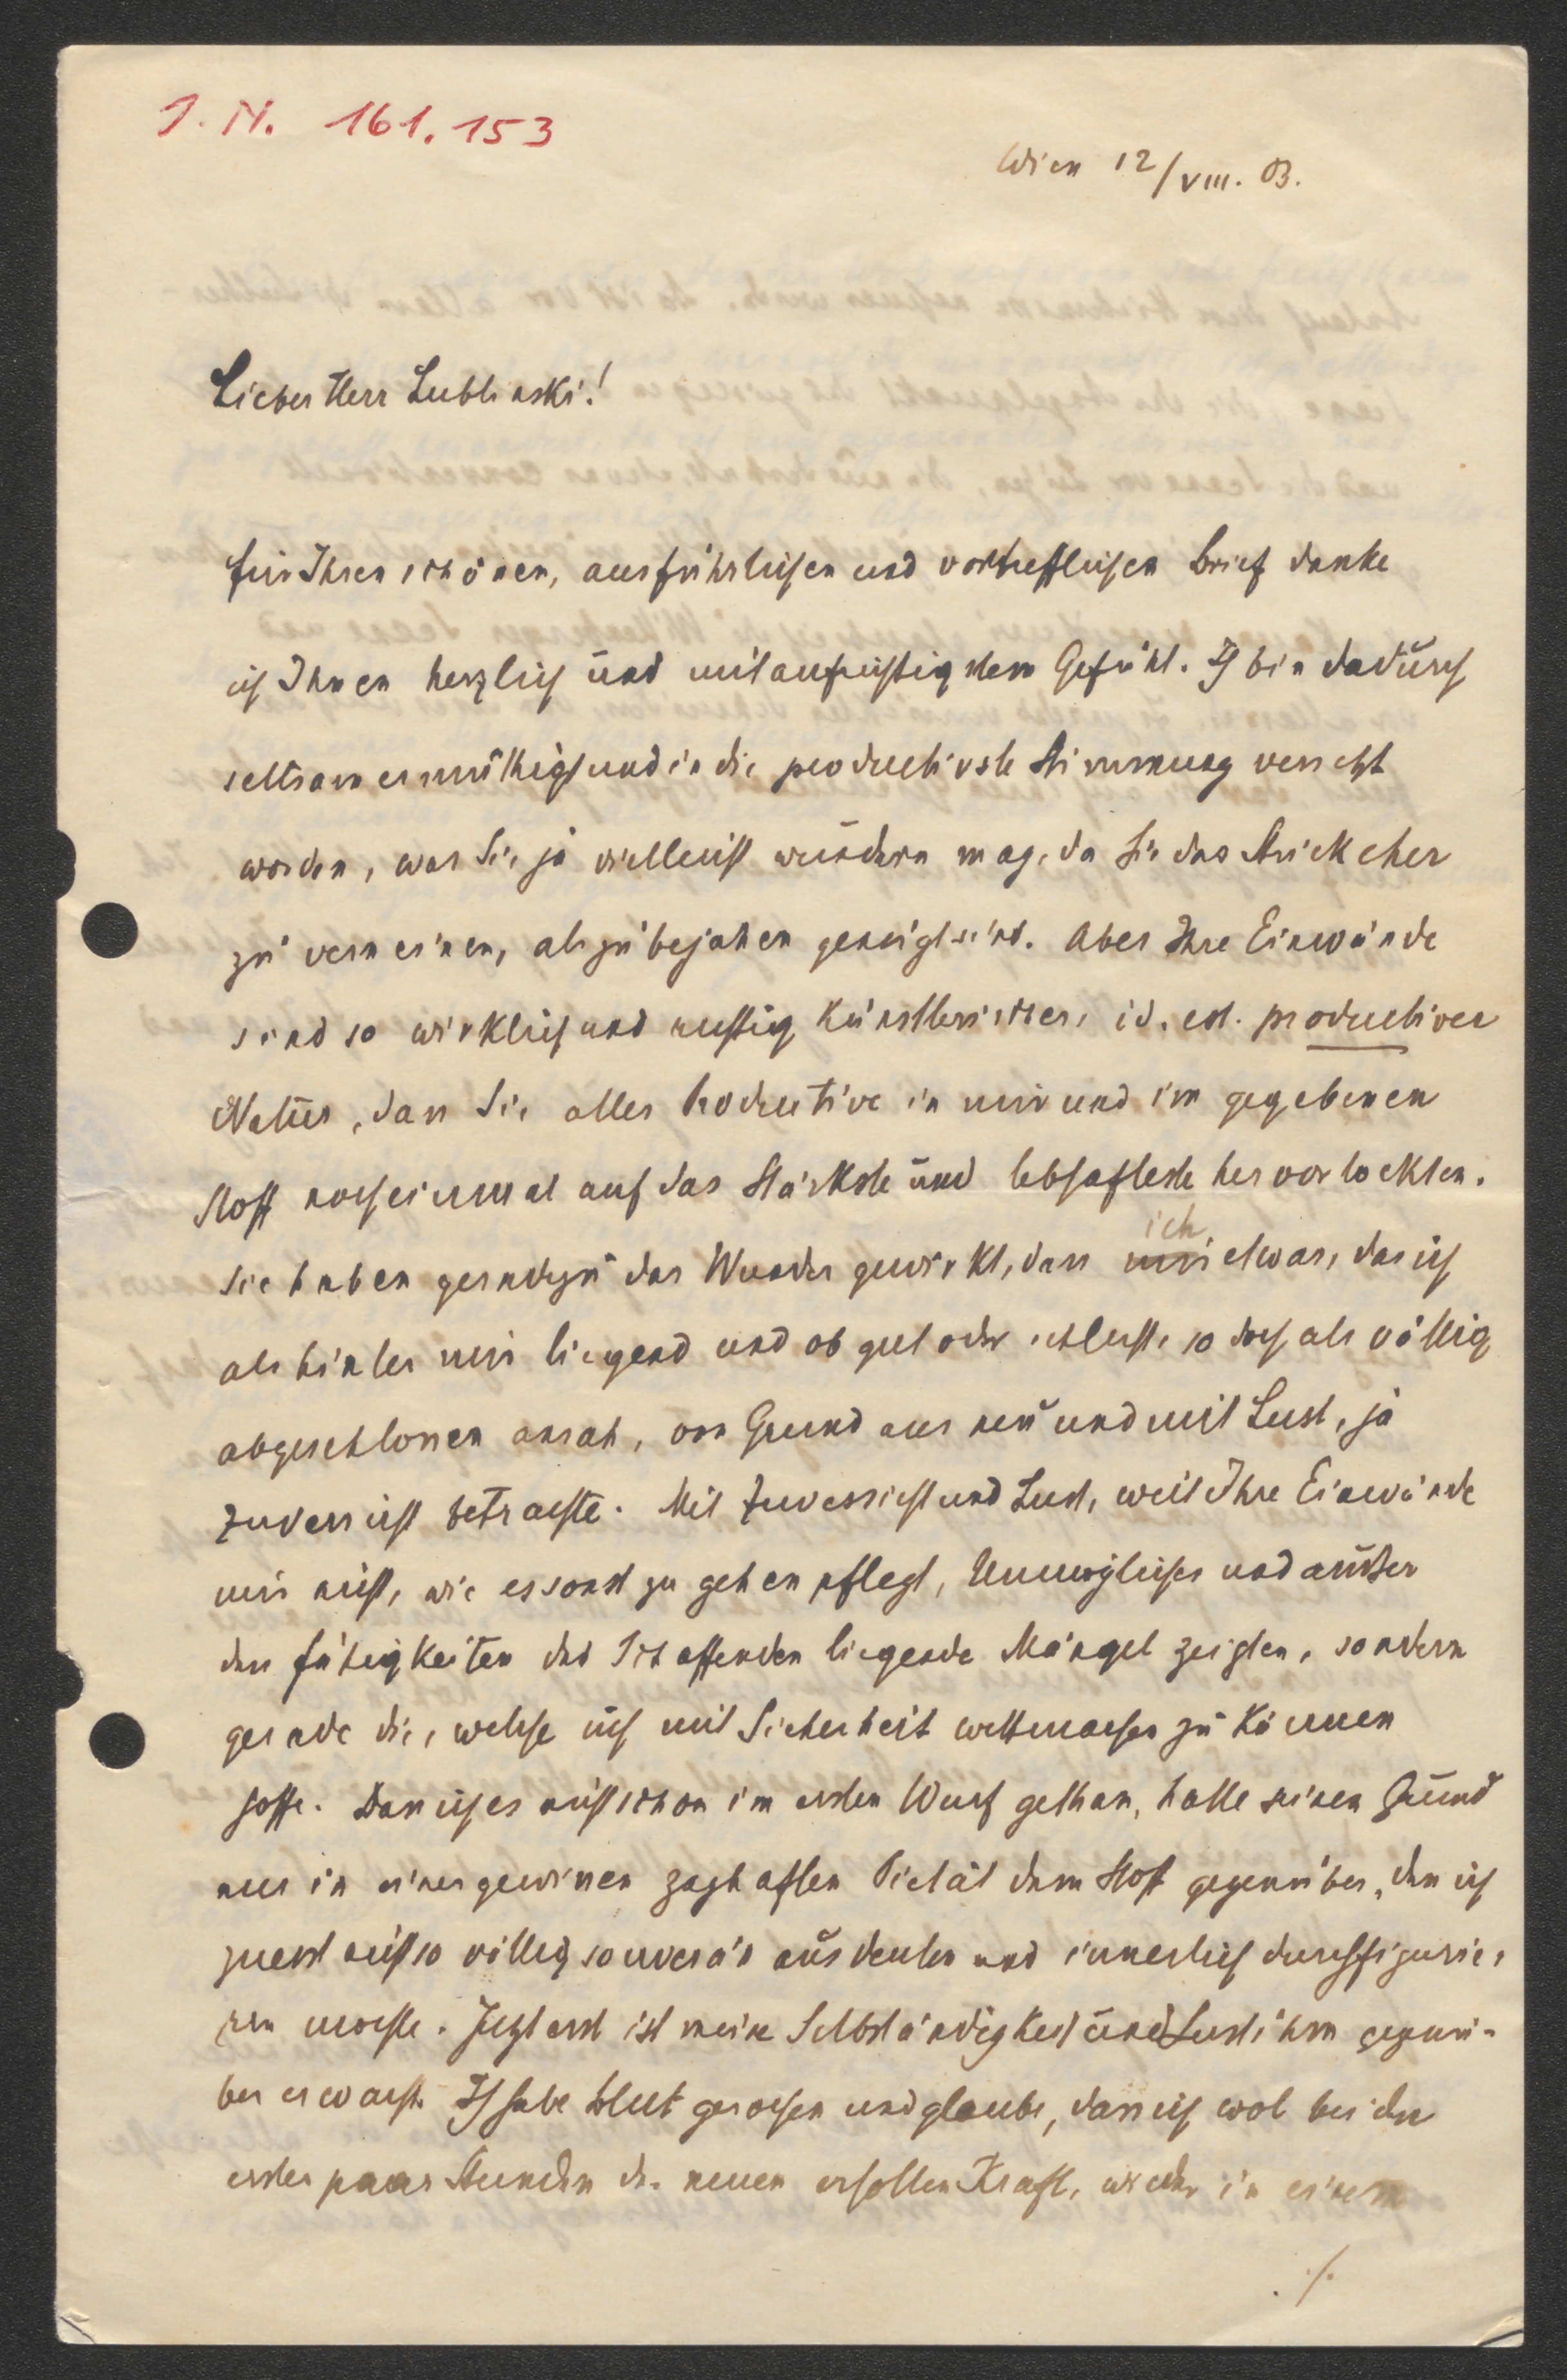 I. N. 161.153
Wien 12/VIII. 03.
Lieber Herr Lublinski!
für Ihren schönen, ausführlichen und vortrefflichen Brief danke
ich Ihnen herzlich und mit aufrichtigstem Gefühl. Ich bin dadurch
seltsam ermüthigt und in die productivste Stimmung versetzt
worden, was Sie ja vielleicht wundern mag, da Sie das Stück eher
zu verneinen, als zu bejahen geneigt sind. Aber Ihre Einwände
sind so wirklich und richtig künstlerischer, id. est. productiver
Natur, dass Sie alles Productive in mir und im gegebenen
Stoff noch einmal auf das Stärkste und lebhafteste hervorlockten.
Sie haben geradezu das Wunder gewirkt, dass mir ich etwas, das ich
als hinter mir liegend und ob gut oder schlecht, so doch als völlig
abgeschlossen ansah, von Grund aus neu und mit Lust, ja
Zuversicht betrachte. Mit Zuversicht und Lust, weil Ihre Einwände
mir nicht, wie es sonst zu gehen pflegt, Unmögliches und außer
den Fähigkeiten des Schaffenden liegende Mängel zeigten, sondern
gerade die, welche ich mit Sicherheit wettmachen zu können
hoffe. Dass ich es nicht schon im ersten Wurf gethan, hatte seinen Grund
nur in einer gewissen zaghaften Pietät dem Stoff gegenüber, den ich
zuerst nicht so völlig souverän ausdeuten und innerlich durchfigurie-
ren mochte. Jetzt erst ist meine Selbständigkeit und Lust ihm gegenü-
ber erwacht. Ich habe Blut gerochen und glaube, dass ich wol bei den
ersten paar Stunden der neuen erholten Kraft, wieder in einem
./.